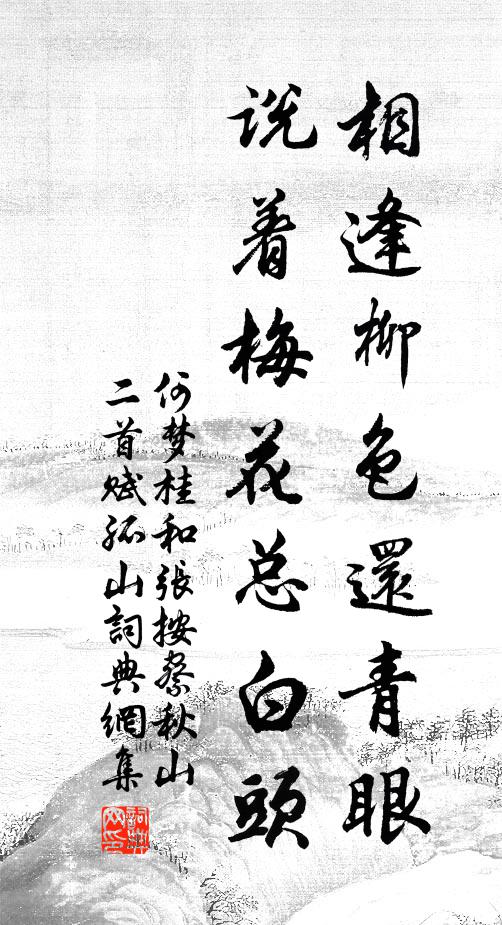 相逢柳色還青眼
説着梅花总白頭
何梦桂和張按察秋山
二首赋孤山詞典網集